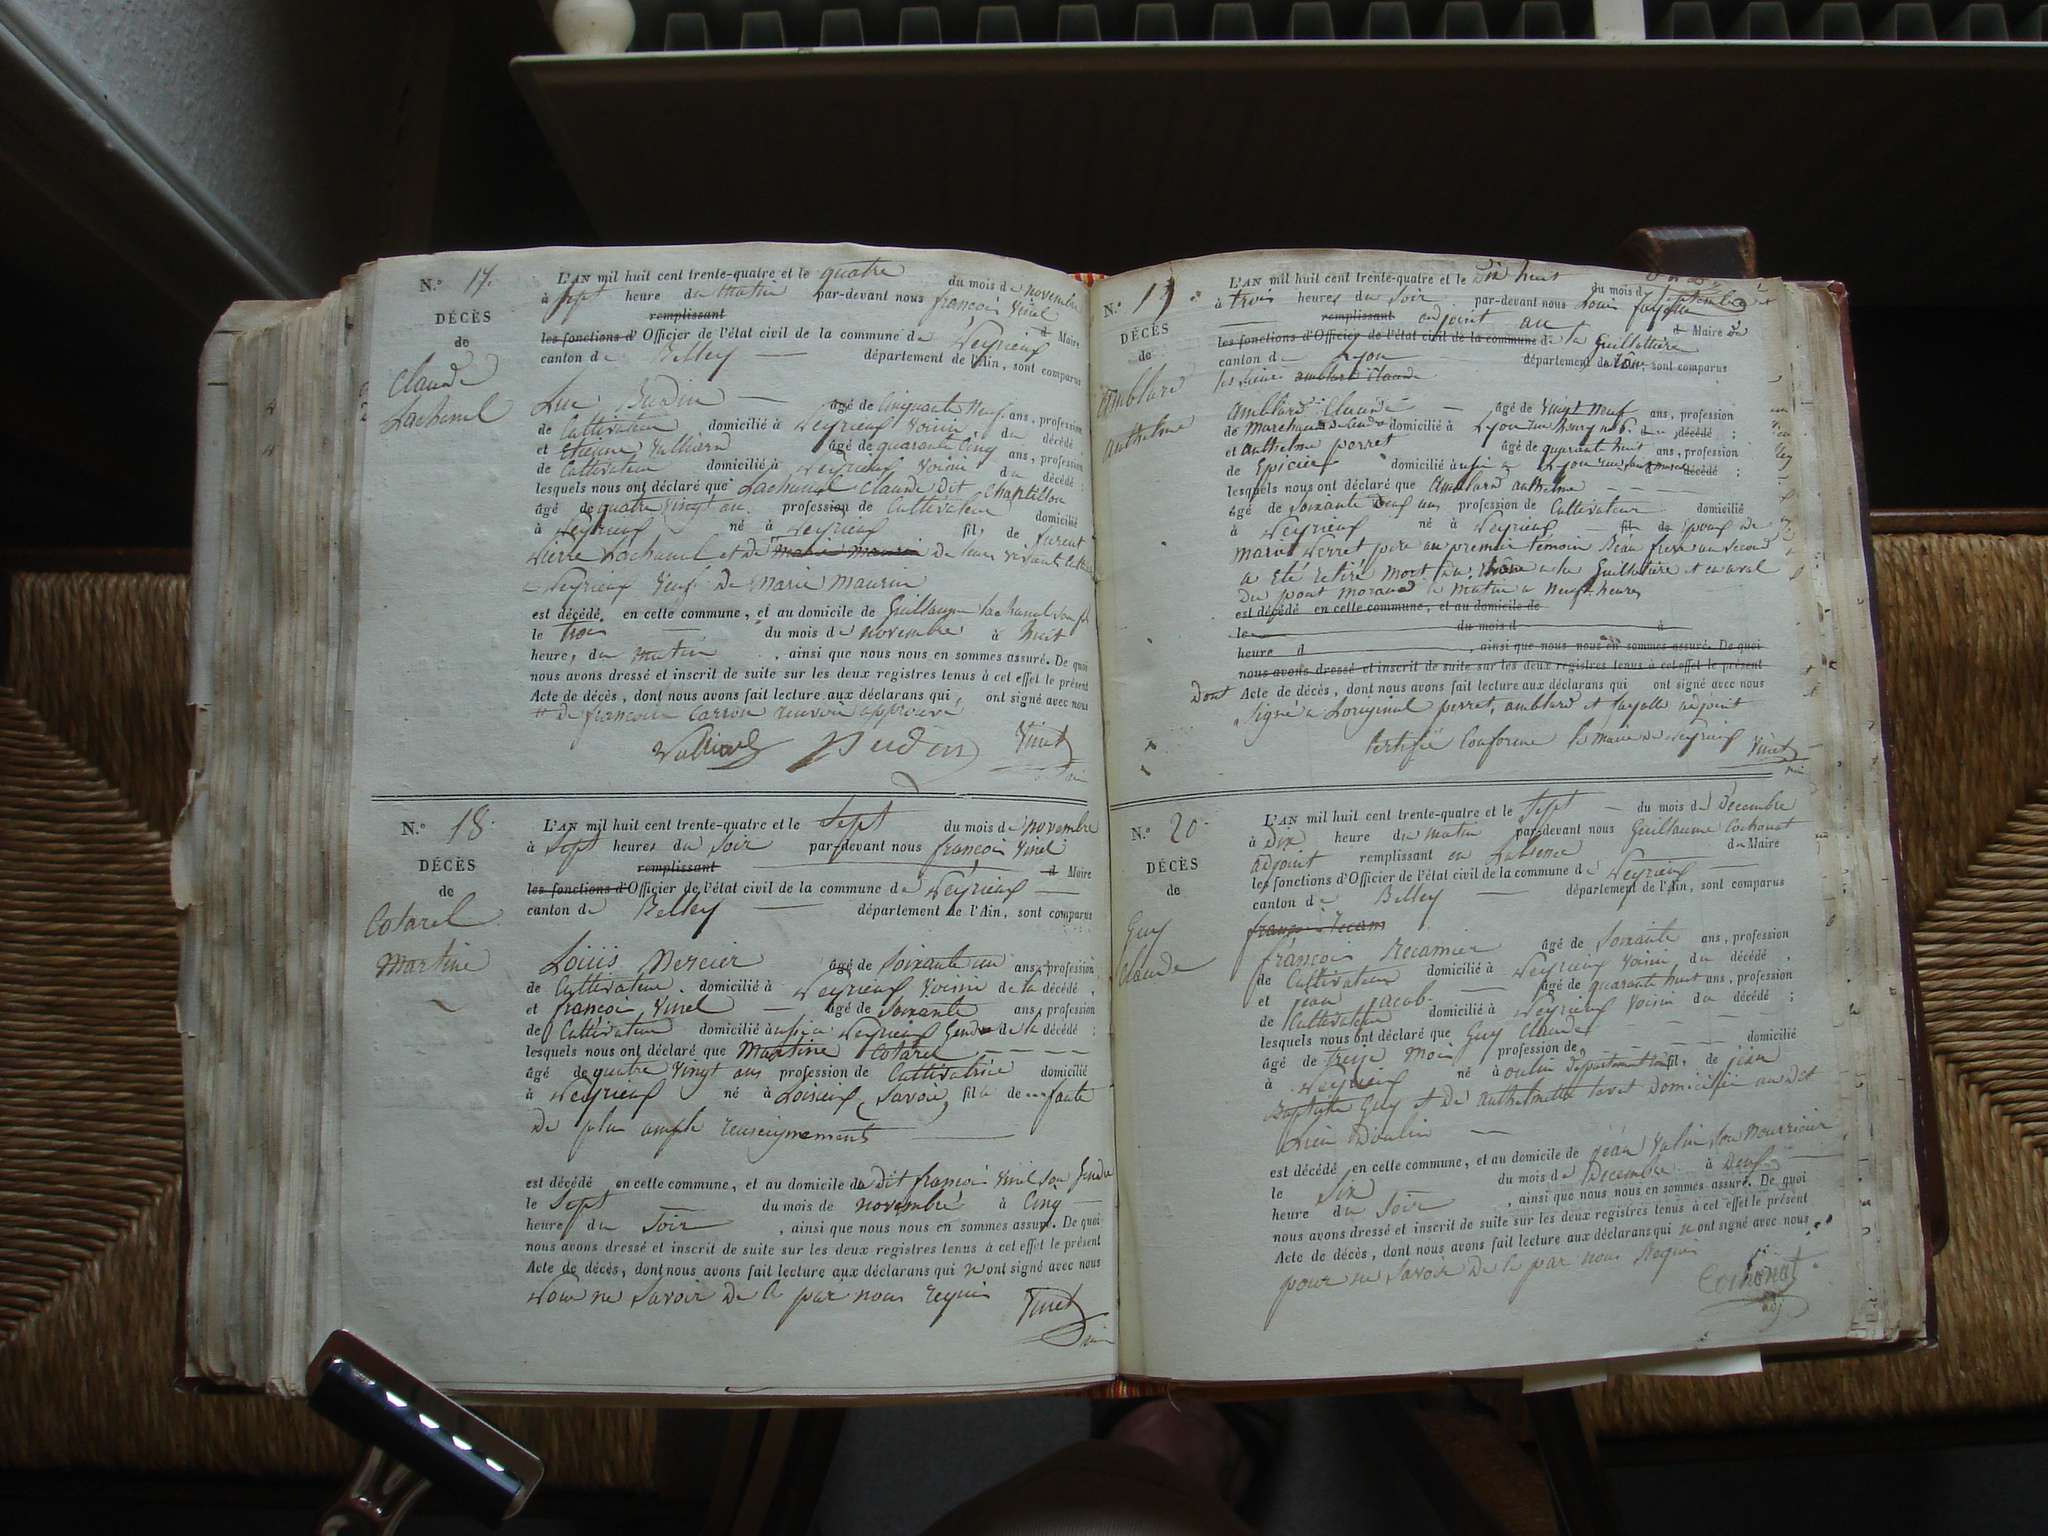 N.° 17.
DÉCÈS
de
Claude
Lachanal
L'AN mil huit cent trente-quatre et le quatre du mois de novembre
à sept heure du matin par-devant nous françois Vinel
remplissant d Maire
les fonctions d'Officier de l'état civil de la commune de Peyrieux
canton de Belley département de l'Ain, sont comparus
Luc Budin âgé de Cinquante Neuf ans, profession
de Cultivateur domicilié à Peyrieux voisin du décédé
et Etienne âgé de quarante Cinq ans, profession
de Cultivateur domicilié à Peyrieux voisin du décédé :
lesquels nous ont déclaré que Lachanal Claude dit Chapillon
âgé de quatre vingt an. profession de Cultivateur domicilié
à Peyrieux né à Peyrieux fils de furent
Pierre Lachanal et de marie maurin de leur vivant
a Peyrieux veuf de Marie Maurin
est décédé en cette commune, et au domicile de Guillaume Lachanal son fils
le trois du mois de novembre à huit
heure, du matin , ainsi que nous nous en sommes assuré. De quoi
nous avons dressé et inscrit de suite sur les deux registres tenus à cet effet le présent
Acte de décès, dont nous avons fait lecture aux déclarans qui ont signé avec nous
de françoise Carron renvoi approuvé
Budin Vinel
N.° 18.
DÉCÈS
de
Cotarel
Martine
L'AN mil huit cent trente-quatre et le Sept du mois de novembre
à Sept heures du Soir par-devant nous françois Vinel
remplissant d Maire
les fonctions d'Officier de l'état civil de la commune de Peyrieux
canton de Belley département de l'Ain, sont comparus
Louis Mercier âgé de soixante un ans, profession
de Cultivateur domicilié à Peyrieux voisin de la décédé ,
et françois Vinel âgé de Soixante ans, profession
de Cultivateur domicilié aussi a Peyrieux Gendre de la décédé :
lesquels nous ont déclaré que Martine Cotarel
âgé de quatre vingt ans profession de Cultivatrice domicilié
à Peyrieux né à Loisieux (Savoie) fille de faute
de plu ample renseignements
est décédé en cette commune, et au domicile du dit françois Vinel son Gendre
le Sept du mois de novembre à Cinq
heure du Soir , ainsi que nous nous en sommes assuré. De quoi
nous avons dressé et inscrit de suite sur les deux registres tenus à cet effet le présent
Acte de décès, dont nous avons fait lecture aux déclarans qui n'ont signé avec nous
pour ne savoir de ce par nous requis Vinel
N.° 19
DÉCÈS
de
Amblard
Anthelme
L'AN mil huit cent trente-quatre et le Dix huit du mois de Septembre
à trois heures du Soir par-devant nous Louis fayolle
remplissant adjoint au d Maire de
les fonctions d'Officier de l'état civil de la commune de la Guillotière
canton de Lyon département du Rône, sont comparus
les Sieurs amblard Claude
Amblard Claude âgé de vingt neuf ans, profession
de Marchand domicilié à Lyon rue n° 6. décédé ;
et Anthelme perret âgé de quarante huit ans, profession
de Epicier domicilié aussi a Lyon rue décédé ;
lesquels nous ont déclaré que Amblard Anthelme
âgé de soixante Deux ans profession de Cultivateur domicilié
à Peyrieux né à Peyrieux fil de Epoux de
marie Perret père au premier témoin Beau frere au Second
a Eté retiré mort du Rhone a la Guillotière et en aval
du pont morand le matin a neuf heures
est décédé en cette commune, et au domicile de
le du mois d à
heure d , ainsi que nous nous en sommes assuré. De quoi
nous avons dressé et inscrit de suite sur les deux registres tenus à cet effet le présent
Dont Acte de décès, dont nous avons fait lecture aux déclarans qui ont signé avec nous
Signé a Loriginal perret, amblard et fayolle adjoint
Certifié Conforme le maire de Peyrieux Vinel
N.° 20
DÉCÈS
de
Guy
Claude
L'AN mil huit cent trente-quatre et le Sept du mois de Decembre
à Dix heure du matin par-devant nous Guillaume Cochonat
adjoint remplissant en Labsence du Maire
les fonctions d'Officier de l'état civil de la commune de Peyrieux
canton de Belley département de l'Ain, sont comparus
françois Recam
françois Recamier âgé de Soixante ans, profession
de Cultivateur domicilié à Peyrieux voisin du décédé ,
et jean jacob âgé de quarante huit ans, profession
de Cultivateur domicilié à Peyrieux voisin du décédé ;
lesquels nous ont déclaré que Guy Claude
âgé de treize mois profession de domicilié
à Peyrieux né à oulin departement fil, de jean
Baptiste Guy et de domicilié au dit
Lieu Doulin
est décédé en cette commune, et au domicile de jean son Nourricier
le Six du mois de Decembre à Deux
heure du Soir , ainsi que nous nous en sommes assuré. De quoi
nous avons dressé et inscrit de suite sur les deux registres tenus à cet effet le présent
Acte de décès, dont nous avons fait lecture aux déclarans qui n'ont signé avec nous
pour ne savoir de ce par nous Requis
Cochonat
adj